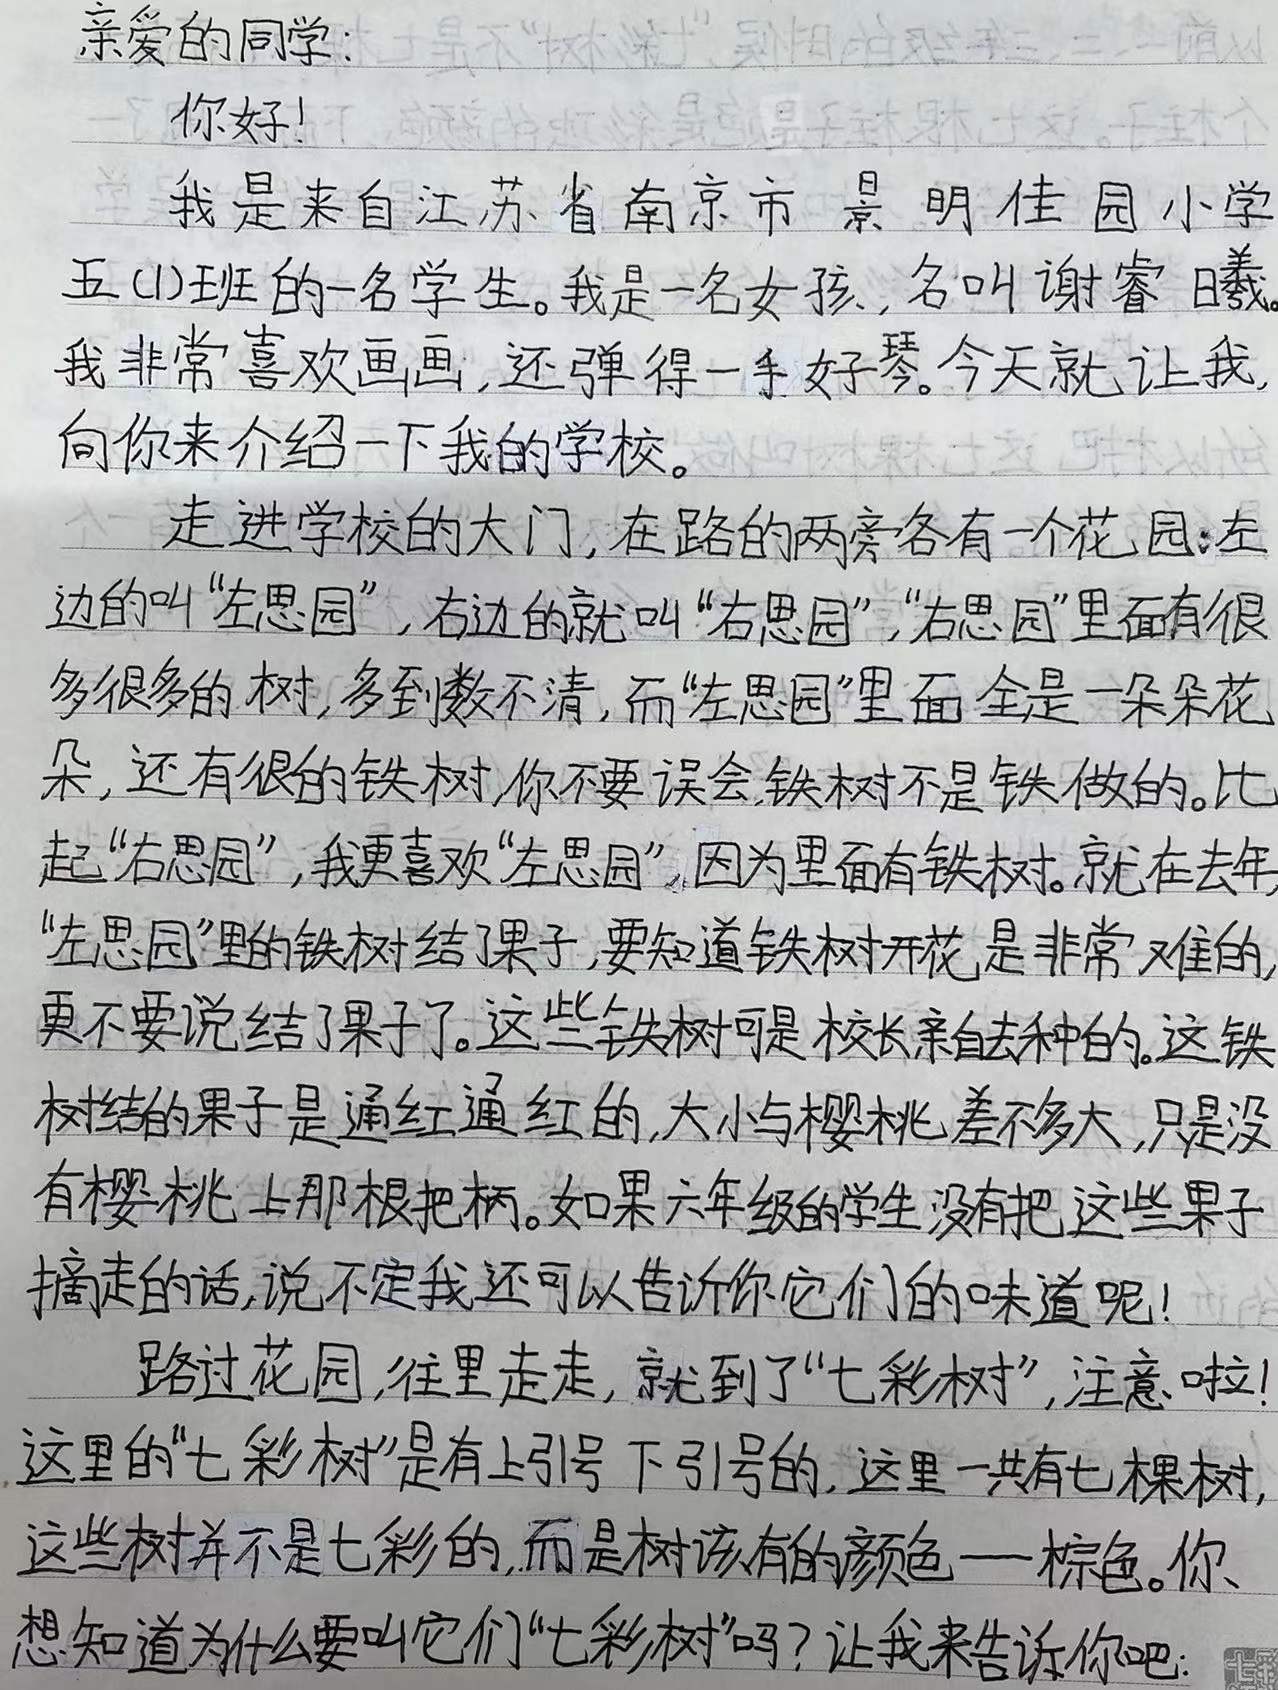 亲爱的同学:
你好!
我是来自江苏省南京市景明佳园小学
五(1)班的一名学生。我是一名女孩,名叫谢睿曦。
我非常喜欢画画,还弹得一手好琴。今天就让我,
向你来介绍一下我的学校。
走进学校的大门,在路的两旁各有一个花园:左
边的叫“左思园”,右边的就叫“右思园”,“右思园”里面有很
多很多的树,多到数不清,而“左思园”里面全是一朵朵花
朵,还有很的铁树,你不要误会,铁树不是铁做的。比
起“右思园”,我更喜欢“左思园”,因为里面有铁树。就在去年,
“左思园”里的铁树结了果子,要知道铁树开花是非常难的,
更不要说结了果子了。这些铁树可是校长亲自去种的。这铁
树结的果子是通红通红的,大小与樱桃差不多大,只是没
有樱桃上那根把柄。如果六年级的学生没有把这些果子
摘走的话,说不定我还可以告诉你它们的味道呢!
路过花园,往里走走,就到了“七彩树”,注意啦!
这里的“七彩树”是有上引号下引号的,这里一共有七棵树,
这些树并不是七彩的,而是树该有的颜色——棕色。你
想知道为什么要叫它们“七彩树”吗?让我来告诉你吧: